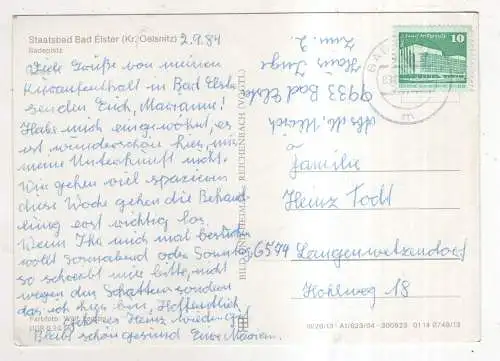 Staatsbad Bad Elster (Kr. Oelsnitz) 2.9.84
Badeplatz
Viele Grüße von meinem
Kuraufenthalt in Bad Elster
senden Euch, Marianne!
Habe mich eingewöhnt, es
ist wunderschön hier, nur
meine Unterkunft nicht.
Wir gehen viel spazieren
diese Woche gehen die Behand-
lung erst richtig los.
Wenn Ihr mich mal besuchen
wollt Sonnabend oder Sonntag
so schreibt mir bitte, nicht
wegen den Schatten sondern
das ich hier bin. Hoffentlich
geht es Heinz wieder gut.
Bleibt schön gesund Eure Mariann.
BILD UND HEIMAT REICHENBACH (VOGTL)
Abs. M. Hirsch
9933 Bad Elster
Haus Junge
Zim. 2
10
BAD
m
à
Familie
Heinz Todt
6574 Langenwetzendorf
Hohlweg 18
Farbfoto:
III/26/13 A1/623/84 300523 01 14 0748/13